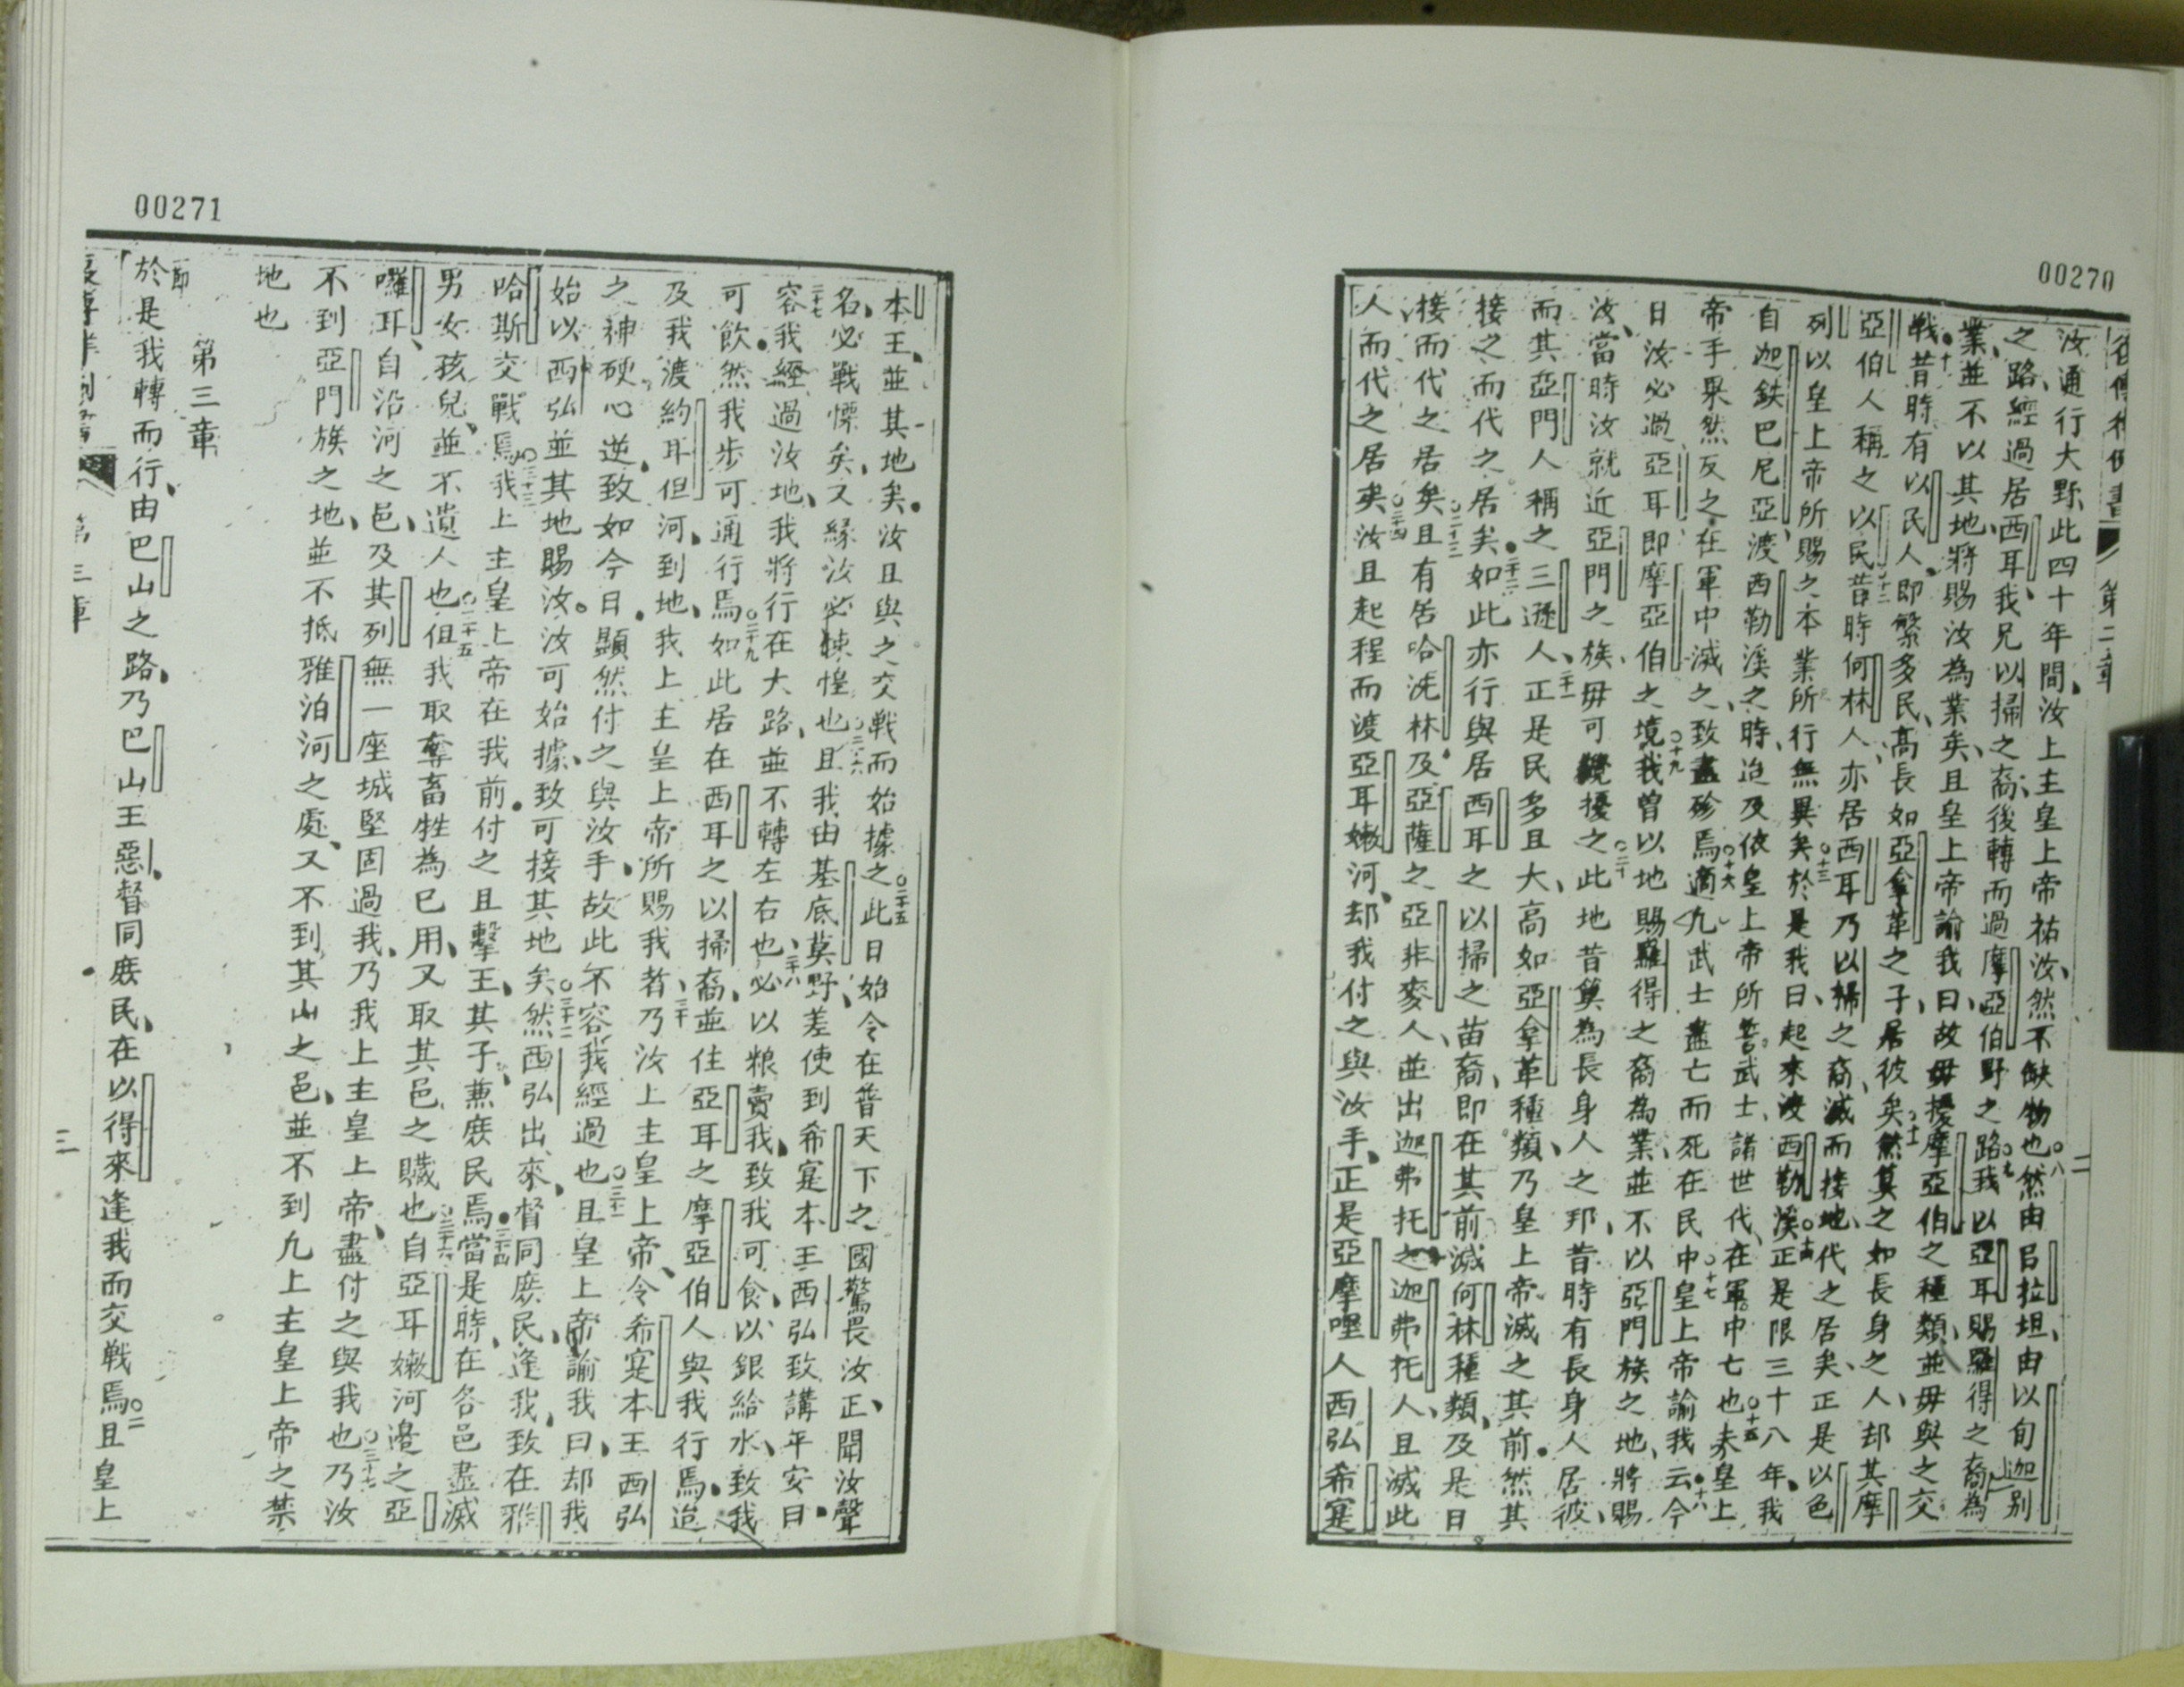 00270
復傳律例書 第二章 二
汝通行大野、此四十年間、汝上主皇上帝祐汝、然不缺物也○八然由
之路、經過居西耳、我兄以掃之裔、後轉而過摩亞伯野之路○九我以亞耳賜羅得之裔為
業、並不以其地、將賜汝為業矣、且皇上帝諭我曰、故毋擾摩亞伯之種類、並毋與之交
戰○十昔時有以民人、即繁多民、高長如亞拿革之子、居彼矣○十一然其之如長身之人、却其摩
亞伯人稱之以民○十二昔時何林人、亦居西耳、乃以掃之裔、滅而接地、代之居矣、正是以色
列以皇上帝所賜之本業所行無異矣○十三於是我曰、起來渡西勒溪○十四正是限三十八年、我
自迦鉄巴尼亞、渡西勒溪之時、迨及依皇上帝所誓武士、諸世代、在軍中亡也○十五夫皇上
帝手果然反之、在軍中滅之、致盡殄焉○十六適九武士盡亡而死在民中○十七皇上帝諭我云○十八今
日汝必過亞耳即摩亞伯之境○十九我曾以地賜羅得之裔為業、並不以亞門族之地、將賜
汝、當時汝就近亞門之族、毋可攪擾之○二十此地昔算為長身人之邦、昔時有長身人居彼、
而其亞門人稱之三遜人、○二十一正是民多且大、高如亞拿革種類、乃皇上帝滅之其前、然其
接之而代之居矣○二十二如此亦行與居西耳之以掃之苗裔、即在其前滅何林種類、及是日
接而代之居矣○二十三且有居哈洗林及亞薩之亞非麥人、並出迦弗托之迦弗托人、且滅此
人而代之居矣○二十四汝且起程而渡亞耳嫩河、却我付之與汝手、正是亞摩哩人西弘希寔
00271
本王、並其地矣、汝且與之交戰而始據之○二十五此日始令在普天下之國驚畏汝、正聞汝聲
名、必戰慄矣、又緣汝必悚惶也○二十六且我由基底莫野、差使到希寔本王西弘致講平安曰、
二十七容我經過汝地、我將行在大路、並不轉左右也、○二十八必以粮賣我、致我可食、以銀給水、致我
可飲、然我步可通行焉○二十九如此居在西耳之以掃裔、並住亞耳之摩亞伯人與我行焉、迨
及我渡約耳但河、到地、我上主皇上帝所賜我者、○三十乃汝上主皇上帝、令希寔本王西弘
之神硬心逆、致如今日、顯然付之與汝手、故此不容我經過也○三十一且皇上帝諭我曰、却我
始以西弘並其地賜汝、汝可始據、致可接其地矣○三十二然西弘出來、督同庶民、逢我、致在雅
哈斯交戰焉○三十三我上主皇上帝在我前付之且擊王、其子、兼庶民焉○三十四當是時、在各邑盡滅
男女孩兒、並不遺人也○三十五但我取奪畜牲為已用、又取其邑之贓也○三十六自亞耳嫩河邊之亞
囉耳、自沿河之邑、及其列無一座城堅固過我、乃我上主皇上帝、盡付之與我也○三十七乃汝
不到亞門族之地、並不抵雅泊河之處、又不到其山之邑、並不到九上主皇上帝之禁
地也
第三章
節於是我轉而行、由巴山之路、乃巴山王惡督同庶民、在以得來逢我而交戰焉○二且皇上
第三章 三